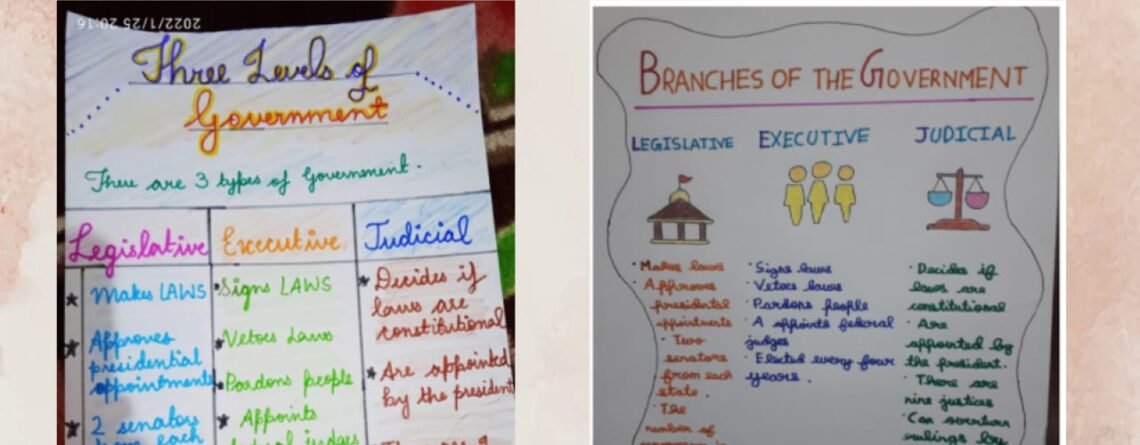 2022/1/25 20:16
Three Levels of
Government
There are 3 types of Government.
Legislative
MAKES LAWS
Approves
presidential
appointments
2 senators
from each
Executive
Signs LAWS
Vetoes Laws
Pardons people
Appoints
federal judges
Judicial
Decides if
laws are
constitutional
Are appointed
by the president
BRANCHES OF THE GOVERNMENT
LEGISLATIVE
Makes laws
Approves
presidental
appointments
Two
senators
from each
state.
The
number of
EXECUTIVE
Signs laws
Vetoes laws
Pardons people
A appoints federal
judges
Elected every four
years.
JUDICIAL
Decides if
laws are
constitutional
Are
appointed by
the president.
There are
nine justices
Can overturn
rulings by